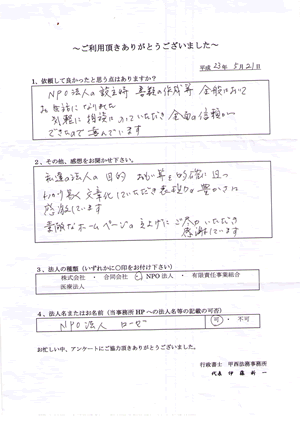 ～ご利用頂きありがとうございました～
平成 23年 5月 21日
1、依頼して良かったと思う点はありますか？
NPO法人の設立時 書類の作成等 全般において
お世話になりました
気軽に相談にのっていただき 全面の信頼が
できたので喜んでいます
2、その他、感想をお聞かせ下さい。
私達の法人の目的 思い等を明確に且つ
わかり易く文章化していただき表現力が豊かさに
感激しています
素敵なホームページの立上げにご尽力いただき
感謝しています
3、法人の種類（いずれかに○印をお付け下さい）
株式会社 ・ 合同会社 ・ NPO法人 ・ 有限責任事業組合
医療法人
4、法人名またはお名前（当事務所HPへの法人名等の記載の可否）
NPO法人 ローゼ
可 ・ 不可
お忙しい中、アンケートにご協力頂きありがとうございました。
行政書士 甲西法務事務所
代表 伊藤 新一